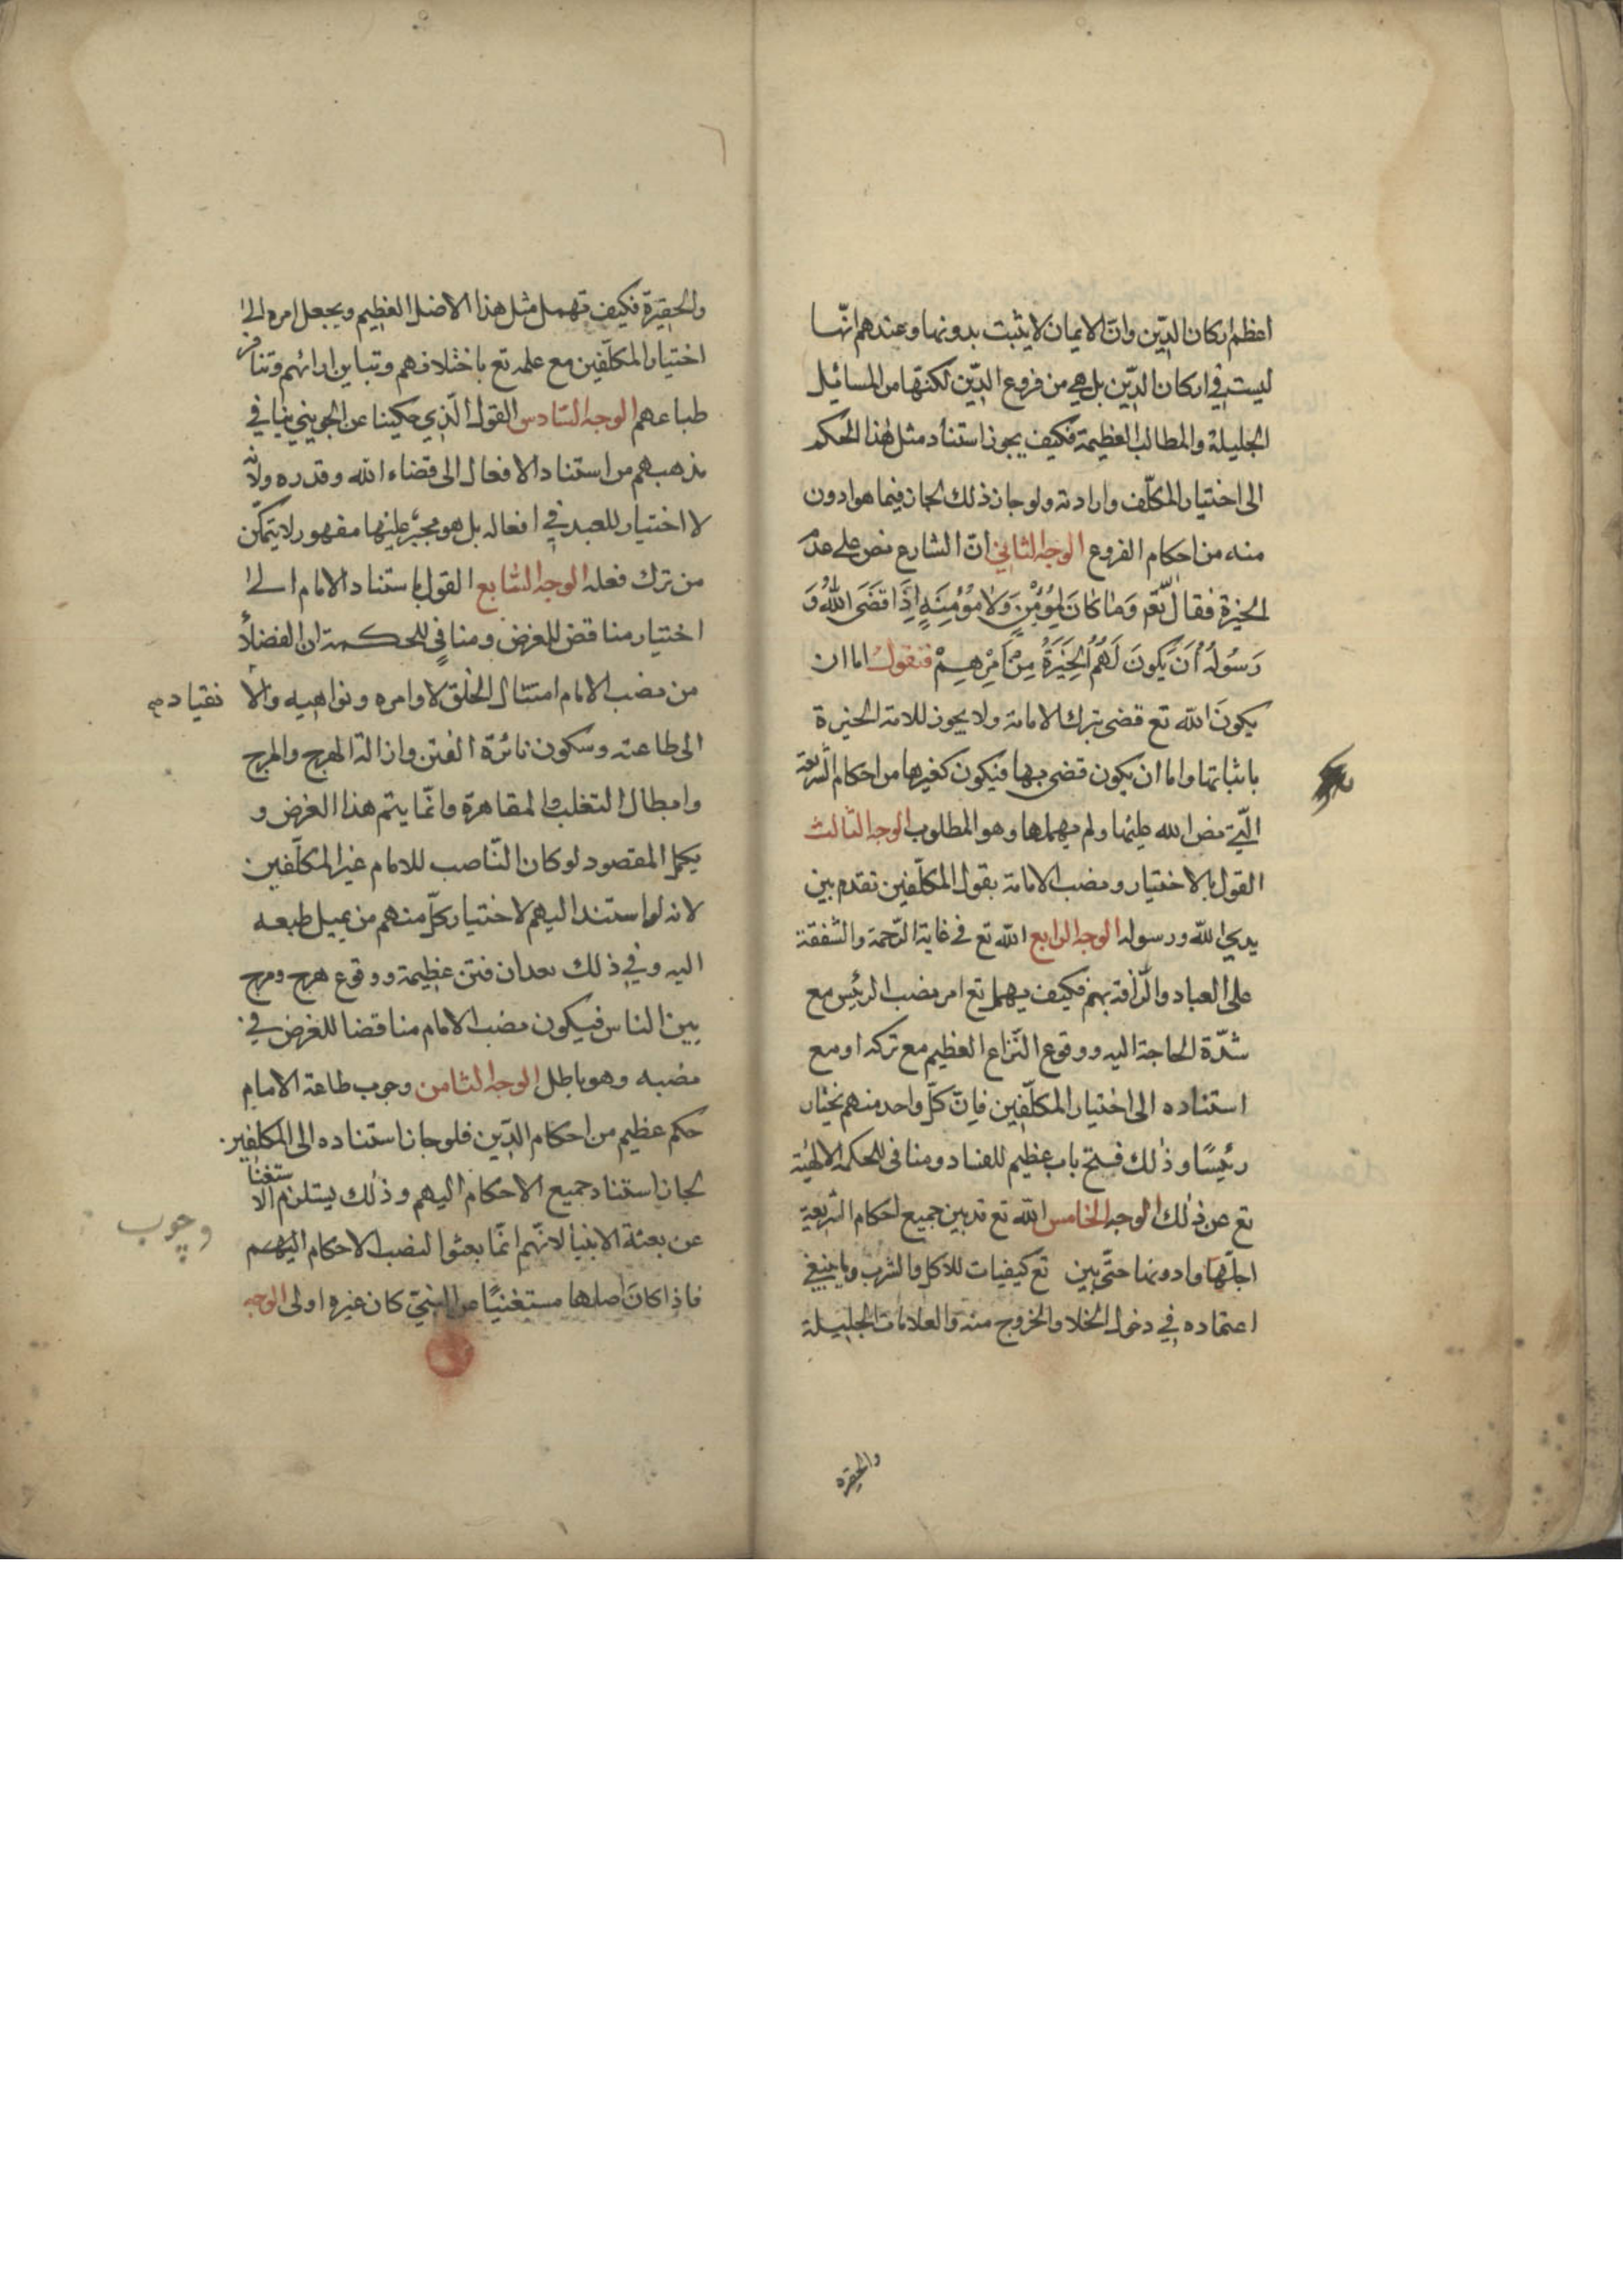 اعظم اركان الدّين وانّ الايمان لا يثبت بدونها وعندهم انّها
ليست في اركان الدّين بل هي من فروع الدّين لكنّها من المسائيل
الجليلة والمطالب العظيمة فكيف يجوز استناد مثل هذا الحكم
الى اختيار المكلّف وارادته ولو جاز ذلك لجاز فيما هو ادون
منه من احكام الفروع الوجه الثاني انّ الشارع نص على عدم
الخيرة فقال تعم وَمَا كَانَ لِمُؤْمِنٍ وَلَا مُؤْمِنَةٍ اِذَا قَضَى اللهُ وَ
رَسُولُهُ اَنْ يَكُونَ لَهُمُ الْخِيَرَةُ مِنْ اَمْرِهِمْ فنقول اما ان
يكون الله تع قضى بترك الامامة ولا يجوز للامة الخيرة
باثباتها واما ان يكون قضى بها فيكون كغيرها من احكام الشريعة
الّتي نص الله عليها ولم يهملها وهو المطلوب الوجه الثّالث
القول بالاختيار ونصب الامامة بقول المكلّفين تقدم بين
يدي الله ورسوله الوجه الرابع الله تع في غاية الرّحمة والشفقة
على العباد والرّافة بهم فكيف يهمل تع امر نصب الرئيس مع
شدّة الحاجة اليه ووقوع النّزاع العظيم مع تركه او مع
استناده الى اختيار المكلّفين فانّ كلّ واحد منهم يختار
رئيسًا وذلك فتح باب عظيم للفساد ومنافى للحكمة الالهيّة
تع عن ذلك الوجه الخامس الله تع قد بين جميع احكام الشريعة
اجلّها وادونها حتّى بين تع كيفيات للاكل والشرب وما ينبغي
اعتماده في دخول الخلا والخروج منه والعلامات الجليلة
والحقيرة
والحقيرة فكيف تهمل مثل هذا الاصل العظيم ويجعل امره الى
اختيار المكلّفين مع علمه تع باختلافهم وتباين ارائهم وتنافر
طباعهم الوجه السّادس القول الّذي حكينا عن الجويني ينافي
مذهبهم من استناد الافعال الى قضاء الله وقدره ولانّه
لا اختيار للعبد في افعاله بل هو مجبّر عليها مقهور لا يتمكّن
من ترك فعله الوجه السّابع القول باستناد الامام الى
اختيار مناقض للغرض ومنافي للحكمة ان الفضلأ
من نصب الامام امتثال الخلق لاوامره ونواهيه والا نقياد
الى طاعته وسكون نائرة الفتن وازالة الهرج والمرج
وابطال التغلب والمقاهرة وانّما يتم هذا الغرض و
يكمل المقصود لو كان النّاصب للامام غير المكلّفين
لانه لو استند اليهم لاختيار كلّ منهم من يميل طبعه
اليه وفي ذلك بعدان فتن عظيمة ووقوع هرج ومرج
بين الناس فيكون نصب الامام مناقضا للغرض في
نصبه وهو باطل الوجه الثامن وجوب طاعة الامام
حكم عظيم من احكام الدّين فلو جاز استناده الى المكلفين
لجاز استناد جميع الاحكام اليهم وذلك يستلزم الا ستغنا
وجوب
عن بعثة الانبيا لانّهم انّما بعثوا لنصب الاحكام اليهم
فاذا كان اصلها مستغنيًا عن النبيّ كان غيره اولى الوجه